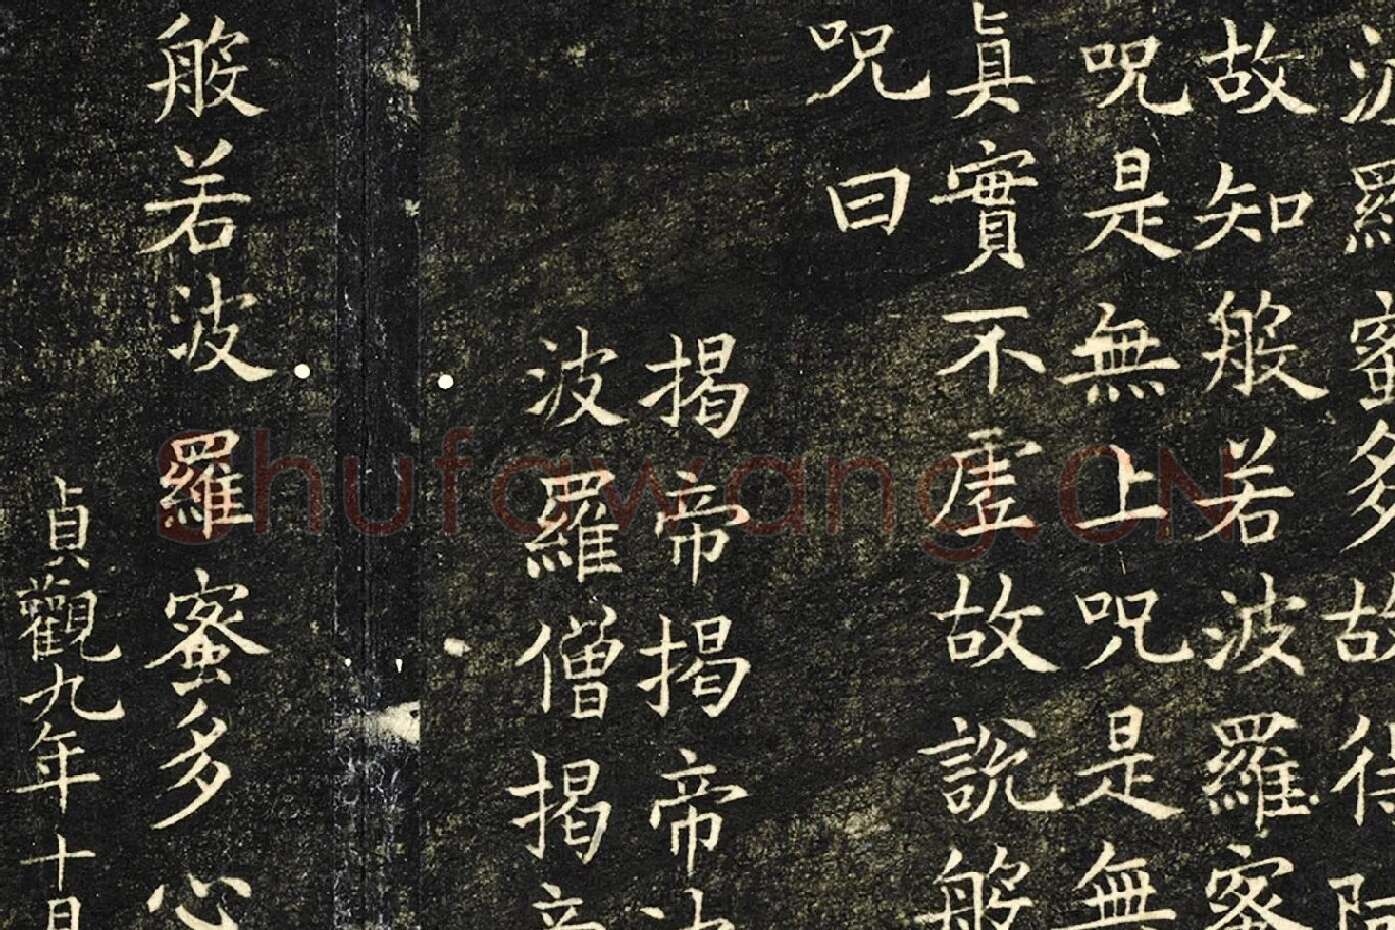 波羅蜜多故得阿
故知般若波羅蜜
呪是無上呪是無
真實不虛故說般
呪曰
揭帝揭帝波
波羅僧揭帝
般若波羅蜜多心
貞觀九年十月
Shufawang.CN